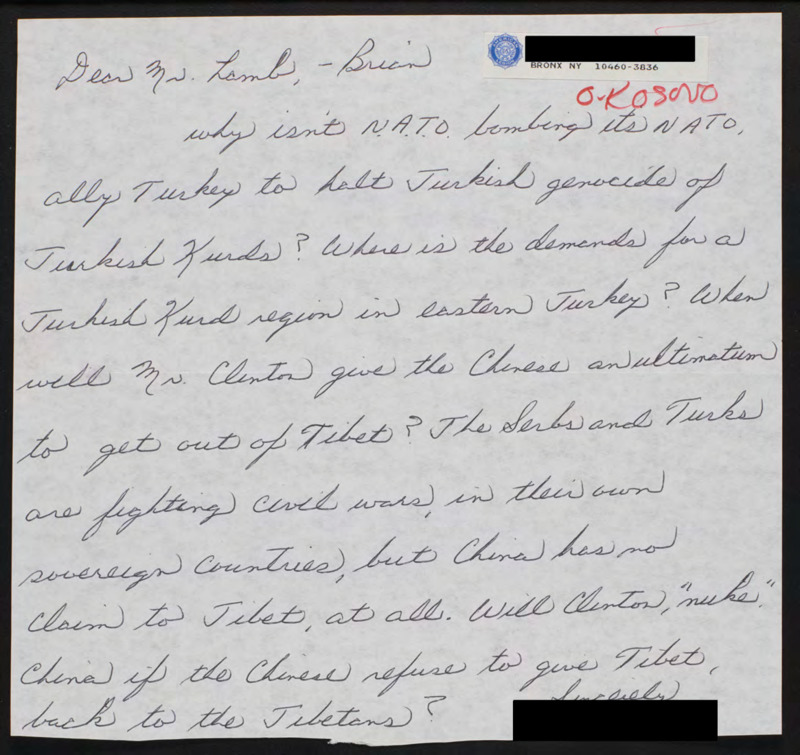 BRONX NY 10460-3836
O-KOSOVO
Dear Mr. Lamb, - Brian
why isn't N.A.T.O. bombing its NATO,
ally Turkey to halt Turkish genocide of
Turkish Kurds? Where is the demands for a
Turkish Kurd region in eastern Turkey? When
will Mr. Clinton give the Chinese an ultimatum
to get out of Tibet? The Serbs and Turks
are fighting civil wars, in their own
sovereign countries, but China has no
claim to Tibet, at all. Will Clinton, "nuke".
China if the Chinese refuse to give Tibet,
back to the Tibetans?
Sincerely